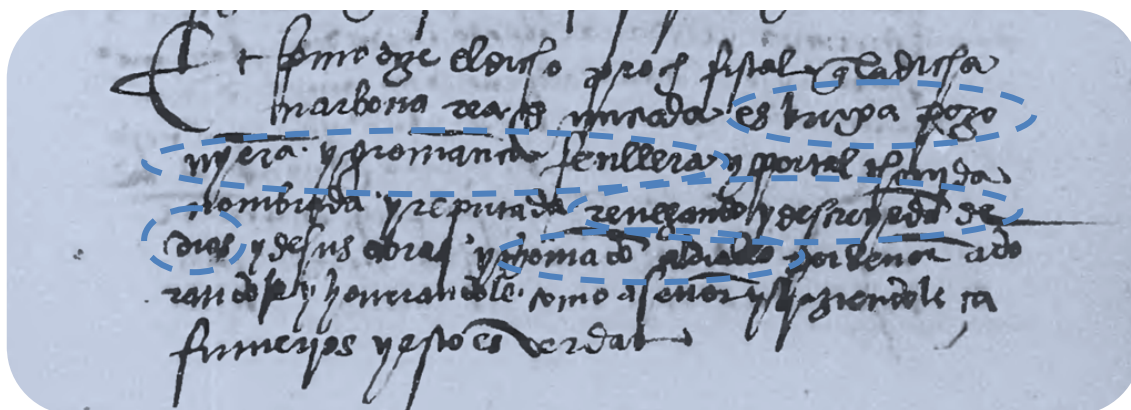 Et primo dize el dicho proc fiscal q la dicha
narbona rea es iuntada es bruxa pozo
nyera y gromancia fetillera y por tal tenida
nombrada y reputada renegando y descreyendo de
dios y de sus obras y tomado al diablo por senor ado
randole y honrrandole como a senor y faziendole sa
y esto es verdat